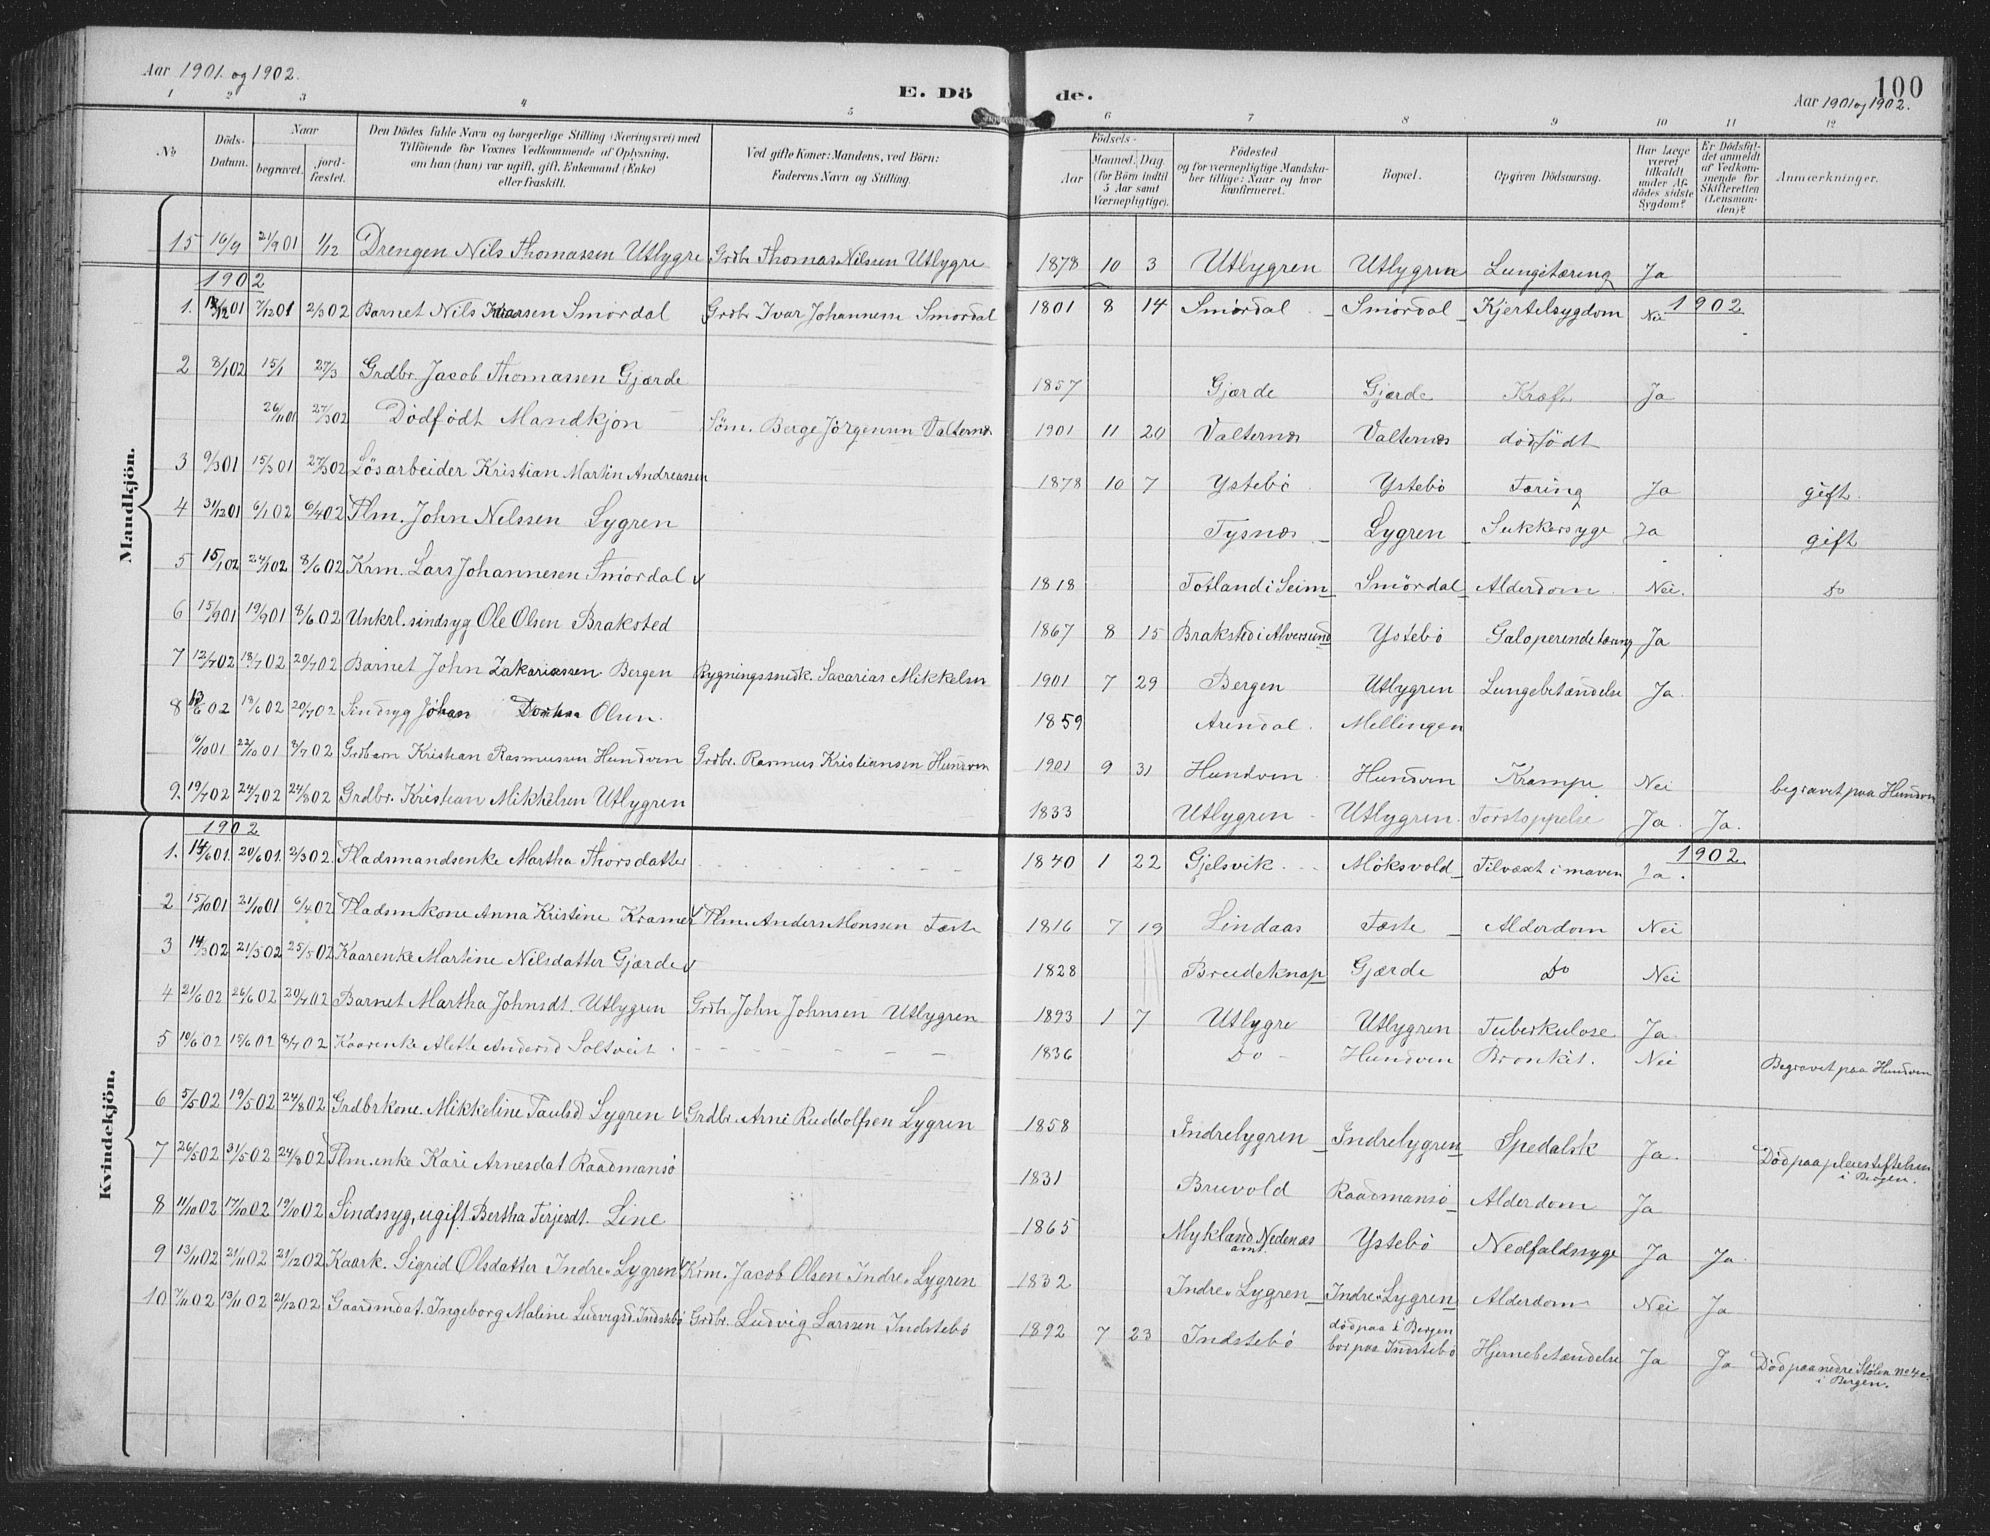 Aar 1901 og 1902.
E. Dö de.
100
Aar 1901 og 1902.
1 2 3 4 5 6 7 8 9 10 11 12
No
Döds-Datum.
Naar
begravet.
jord-fæstet.
Den Dödes fulde Navn og borgerlige Stilling (Næringsvei) med
Tilföiende for Voxnes Vedkommende af Oplysning,
om han (hun) var ugift, gift, Enkemand (Enke)
eller fraskilt.
Ved gifte Koner: Mandens, ved Börn:
Faderens Navn og Stilling.
Födsels-
Aar
Maaned. Dag
(for Börn indtil
5 Aar samt
Værnepligtige).
Födested
og for værnepligtige Mandska-
ber tillige: Naar og hvor
konfirmeret.
Bopæl.
Opgiven Dödsaarsag.
Har Læge
været
tilkaldt
under Af-
dödes sidste
Sygdom?
Er Dödsfal-
det anmeldt
af Vedkom-
mende for
Skifteretten
(Lensman-
den)?
Anmærkninger.
Mandkjön.
15 16/9 21/9 01 1/12 Drengen Nils Thomassen Utlygre Grdbr Thomas Nilsen Utlygre 1878 10 3 Utlygren Utlygren Lungetæring Ja
1902
1902
1. /12 01 7/12 01 2/3 02 Barnet Nils Ivarsen Smørdal Grdbr Ivar Johannesen Smørdal 1801 8 14 Smørdal Smørdal Kjertelsygdom Nei
2 8/1 02 15/1 27/3 Grdbr. Jacob Thomassen Gjærde 1857 Gjærde Gjærde Kræft Ja
26/11 01 27/3 02 Dödfödt Mandkjøn Söm. Berge Jörgensen Valternæs 1901 11 20 Valternæs Valternæs dödfödt
3 9/3 01 15/3 01 27/3 02 Lösarbeider Kristian Martin Andreassen 1878 10 7 Ystebö Ystebö Tæring Ja gift.
4 31/12 01 6/1 02 6/4 02 Plm. John Nilssen Lygren Tysnæs Lygren Sukkersyge Ja gift
5 15/1 02 24/1 02 8/6 02 Krm. Lars Johannesen Smørdal 1818 Totland i Seim Smørdal Alderdom Nei. Do
6 15/9 01 19/9 01 8/6 02 Unkrl. sindsyg Ole Olsen Braksted 1867 8 15 Braksted i Alversund Ystebö Galoperende tæring Ja
7 12/7 02 18/7 02 20/7 02 Barnet John Zakariassen Bergen Bygningssnedk. Sacarias Mikkelsen 1901 7 29 Bergen Utlygren Lungebetændelse Ja.
8 /6 02 18/6 02 20/7 02 Sindsyg Johan Olsen. 1859 Arendal. Mellingen
6/10 01 22/10 01 8/7 02 Grdbarn Kristian Rasmussen Hundven Grdbr. Rasmus Kristiansen Hundven 1901 9 31 Hundven Hundven Krampe Nei begravet paa Hundven
9. 19/7 02 24/7 02 24/8 02 Grdbr. Kristian Mikkelsen Utlygren 1833 Utlygren Utlygren. Forstoppelse Ja. Ja.
Kvindekjön.
1902
1902
1. 14/6 01. 20/6 01. 2/3 02. Pladsmandsenke Martha Thorsdatter 1840 1 22 Gjelsvik Möksvold Tilvæxt i maven Ja.
2 15/10 01 21/10 01 6/4 02 Pladsmkone Anna Kristine Kramer Plm. Anders Monssen Fæste 1816 7 19 Lindaas Fæste Alderdom Nei
3 14/3 02 21/3 02 25/5 02 Kaarenke Martine Nilsdatter Gjærde 1828 Breideknap Gjærde Do Nei
4 21/6 02 26/6 02 20/7 02 Barnet Martha Johnsdt. Utlygren Grdbr John Johnsen Utlygren 1893 1 7 Utlygre Utlygren Tuberkulose Ja.
5 10/6 02 15/6 02 8/7 02 Kaarenke Alette Andersd Soltveit 1836 Do Hundven Bronkit. Nei Begravet paa Hundven
6 5/5 02 19/5 02 24/8 02 Grdbrkone. Mikkeline Paulsd Lygren Grdbr. Arne Ruddolfsen Lygren 1858 Indrelygren Indrelygren Spedalsk Ja. Död paa pleiestiftelsen
i Bergen.
7 26/5 02 31/5 02 24/8 02 Plm. enke Kari Arnesdat Raadmansö 1831 Bruvold Raadmansö Alderdom Ja
8 11/10 02 17/10 02 19/10 02 Sindssyg, ugift. Bertha Terjesdt. Line 1865 Mykland Nedenæs
amt. Ystebö Nedfaldssyge Ja Ja.
9 13/11 02 21/11 02 21/12 02 Kaark. Sigrid Olsdatter Indre Lygren Krm. Jacob Olsen Indre Lygren 1832 Indre Lygren Indre Lygren Alderdom Nei Ja
10 7/11 02 13/11 02 21/12 02 Gaardmdat. Ingeborg Maline Ludvigsd. Indstebö Grdbr. Ludvig Larssen Indstebö 1892 7 23 Indstebö död paa i Bergen
bor paa Indstebö Hjernebetændelse Ja Ja Död paa nedre Stölen No 4c.
i Bergen.